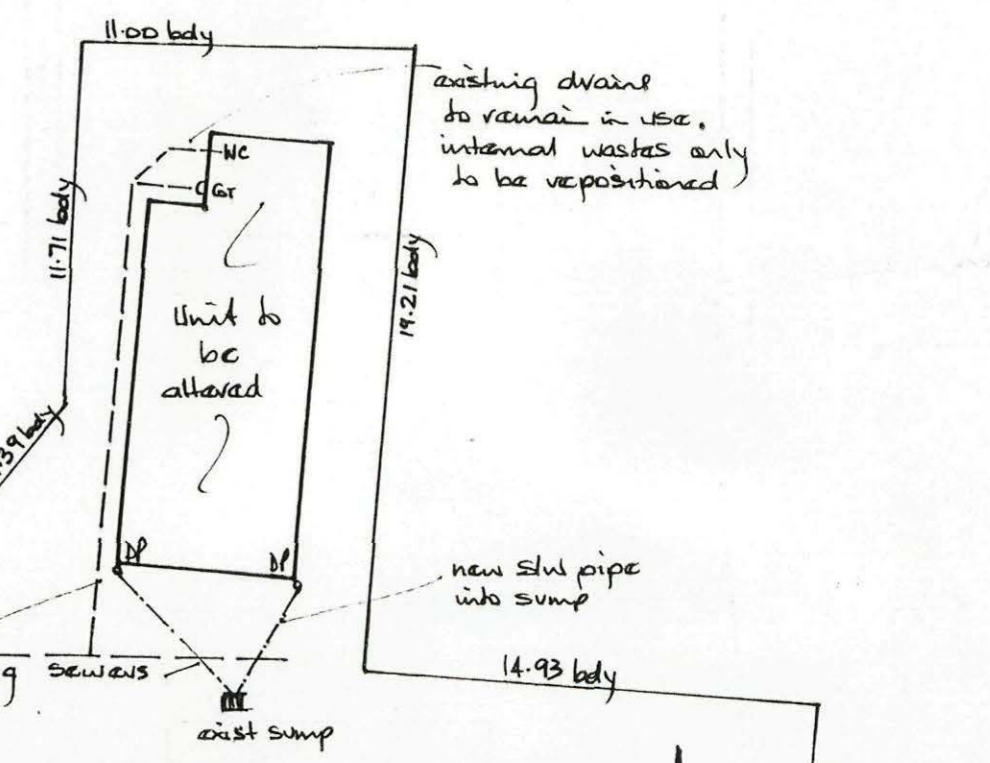 11.00 bdy
existing drains
to remain in use.
internal wastes only
to be repositioned
WC
GT
11.71 bdy
19.21 bdy
Unit to
be
altered
.39 bdy
DP
DP
new s/w pipe
into sump
g sewers
14.93 bdy
exist sump